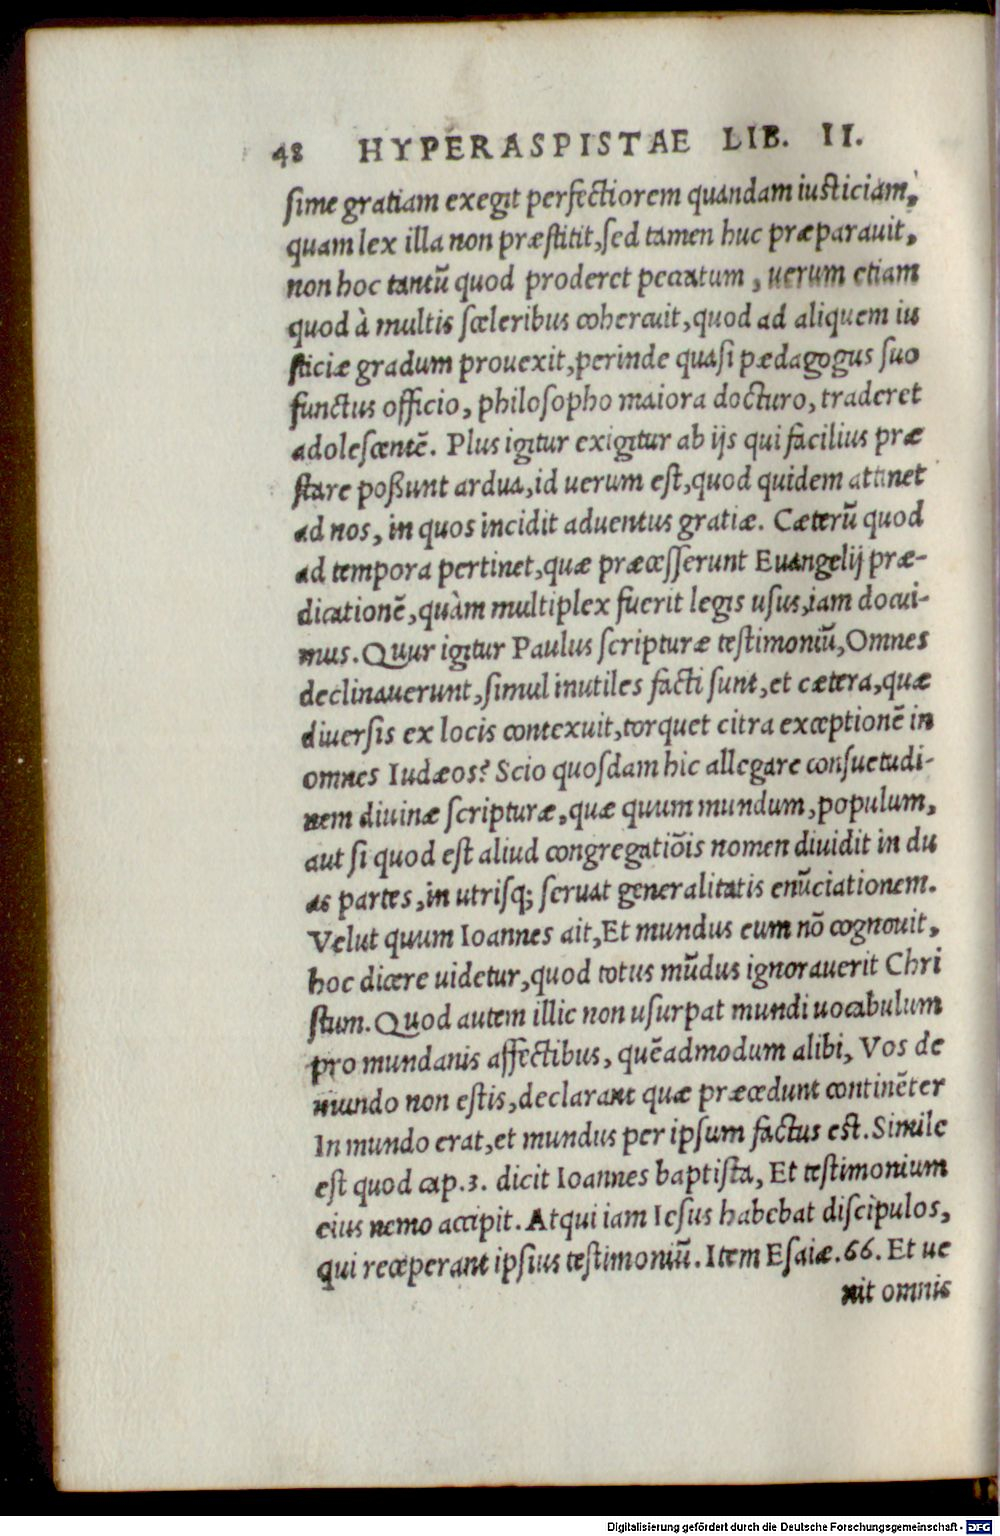 48 HYPERASPISTAE LIB. II.
sime gratiam exegit perfectiorem quandam iusticiam,
quam lex illa non præstitit, sed tamen huc præparauit,
non hoc tantũ quod proderet peccatum, uerum etiam
quod à multis sceleribus cohercuit, quod ad aliquem iu
sticiæ gradum prouexit, perinde quasi pædagogus suo
functus officio, philosopho maiora docturo, traderet
adolescentẽ. Plus igitur exigitur ab ijs qui facilius præ
stare poßunt ardua, id uerum est, quod quidem attinet
ad nos, in quos incidit aduentus gratiæ. Cæterũ quod
ad tempora pertinet, quæ præcesserunt Euangelij præ-
dicationẽ, quàm multiplex fuerit legis usus, iam docui-
mus. Quur igitur Paulus scripturæ testimoniũ, Omnes
declinauerunt, simul inutiles facti sunt, et cætera, quæ
diuersis ex locis contexuit, torquet citra exceptionẽ in
omnes Iudæos? Scio quosdam hic allegare consuetudi-
nem diuinæ scripturæ, quæ quum mundum, populum,
aut si quod est aliud congregatiõis nomen diuidit in du
as partes, in utrisq; seruat generalitatis enũciationem.
Velut quum Ioannes ait, Et mundus eum nõ cognouit,
hoc dicere uidetur, quod totus mũdus ignorauerit Chri
stum. Quod autem illic non usurpat mundi uocabulum
pro mundanis affectibus, quẽadmodum alibi, Vos de
mundo non estis, declarant quæ præcedunt continẽter
In mundo erat, et mundus per ipsum factus est. Simile
est quod cap. 3. dicit Ioannes baptista, Et testimonium
eius nemo accipit. Atqui iam Iesus habebat discipulos,
qui receperant ipsius testimoniũ. Item Esaiæ. 66. Et ue
nit omnis
Digitalisierung gefördert durch die Deutsche Forschungsgemeinschaft - DFG